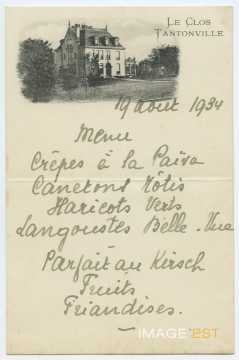 Le Clos
Tantonville
19 août 1934
Menu
Crêpes à la Païva
Canetons Rôtis
Haricots Verts
Langoustes Belle-Vue
Parfait au Kirsch
Fruits
Friandises.
IMAGE'EST